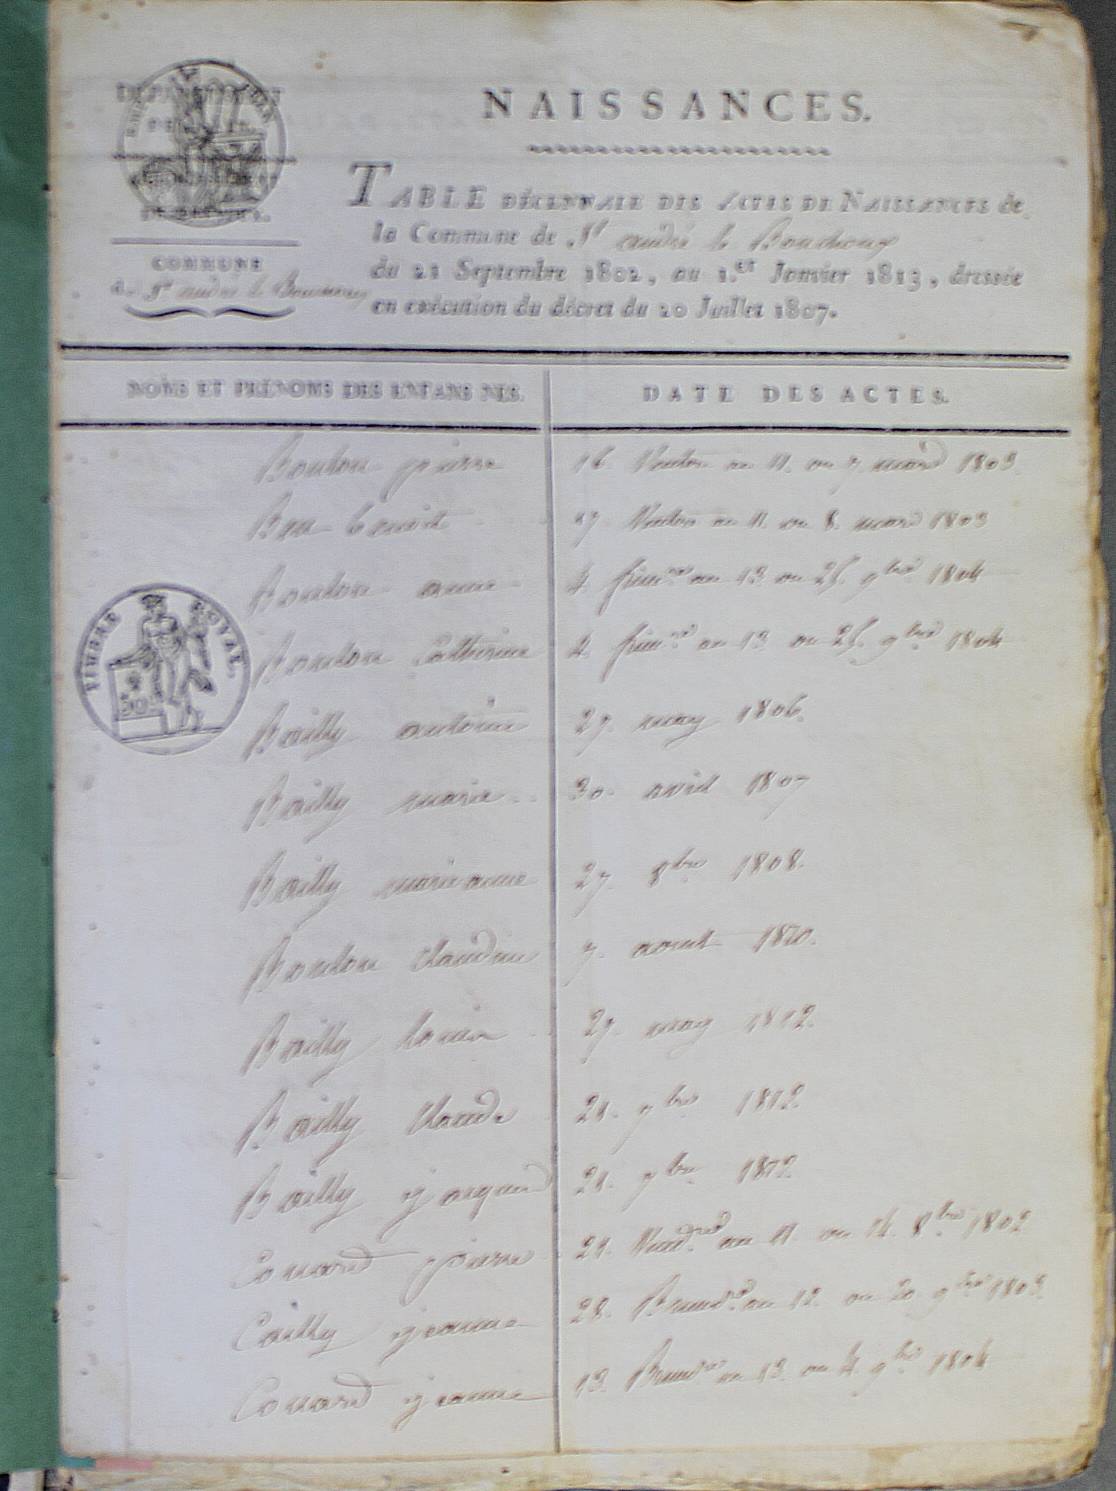 DÉPARTEMENT
COMMUNE
de St andré le Bouchoux
NAISSANCES.
TABLE DÉCENNALE DES ACTES DE NAISSANCES de
la Commune de St andré le Bouchoux
du 21 Septembre 1802, au 1.er Janvier 1813, dressée
en exécution du décret du 20 Juillet 1807.
NOMS ET PRÉNOMS DES ENFANS NÉS. DATE DES ACTES.
Boulon pierre 16 Ventose an 11. ou 7 mars 1803
benoit 17 Ventose an 11. ou 8. mars 1803
Boulon anne 4 frim.re an 13 ou 25. 9bre 1804
Boulon Catherine 4. frim.re an 13. ou 25. 9bre 1804
TIMBRE ROYAL.
Bailly antoine 27. may 1806.
Bailly marie 30. avril 1807
Bailly marieanne 27. 8bre 1808.
Boulon Claudine 7. aout 1810.
Bailly 27. may 1812.
Bailly Claude 21. 9bre 1812.
Bailly 21. 9bre 1812.
Couard pierre 21. Vend.re an 11. ou 14. 8bre 1802
Cailly jeanne 28. Brum.re an 12. ou 20 9bre 1803.
Couard jeanne 13. Brum.re an 13. ou 4. 9bre 1804